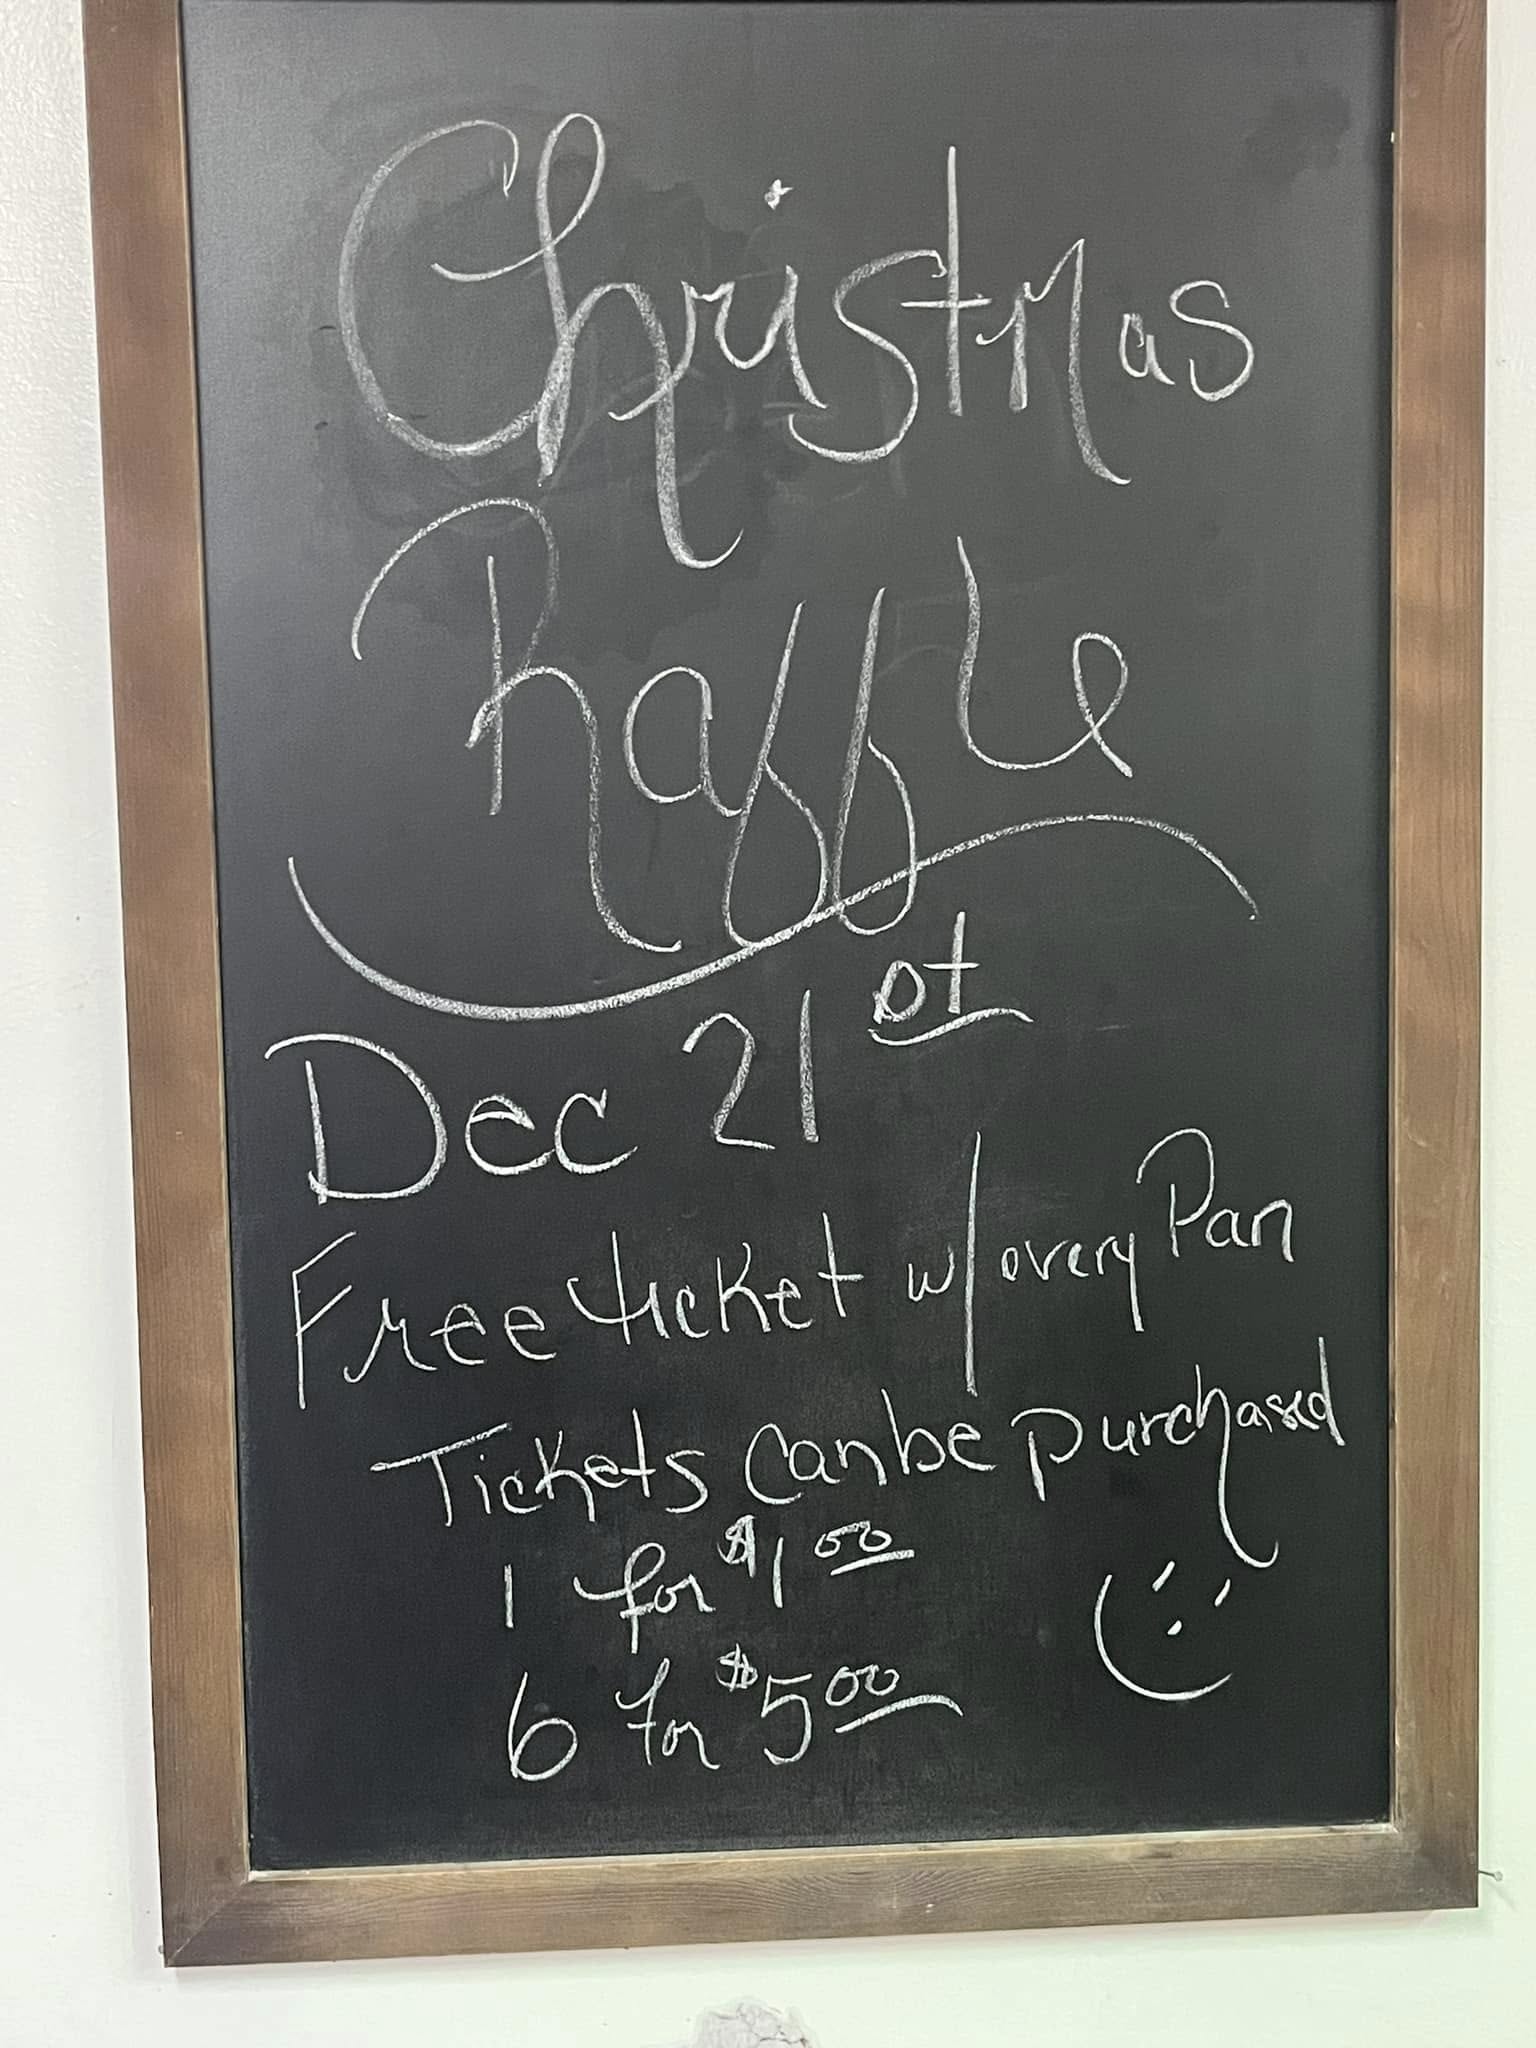 Christmas
Raffle
Dec 21st
Free ticket w/ every Pan
Tickets can be purchased
1 for $1.00
6 for $5.00